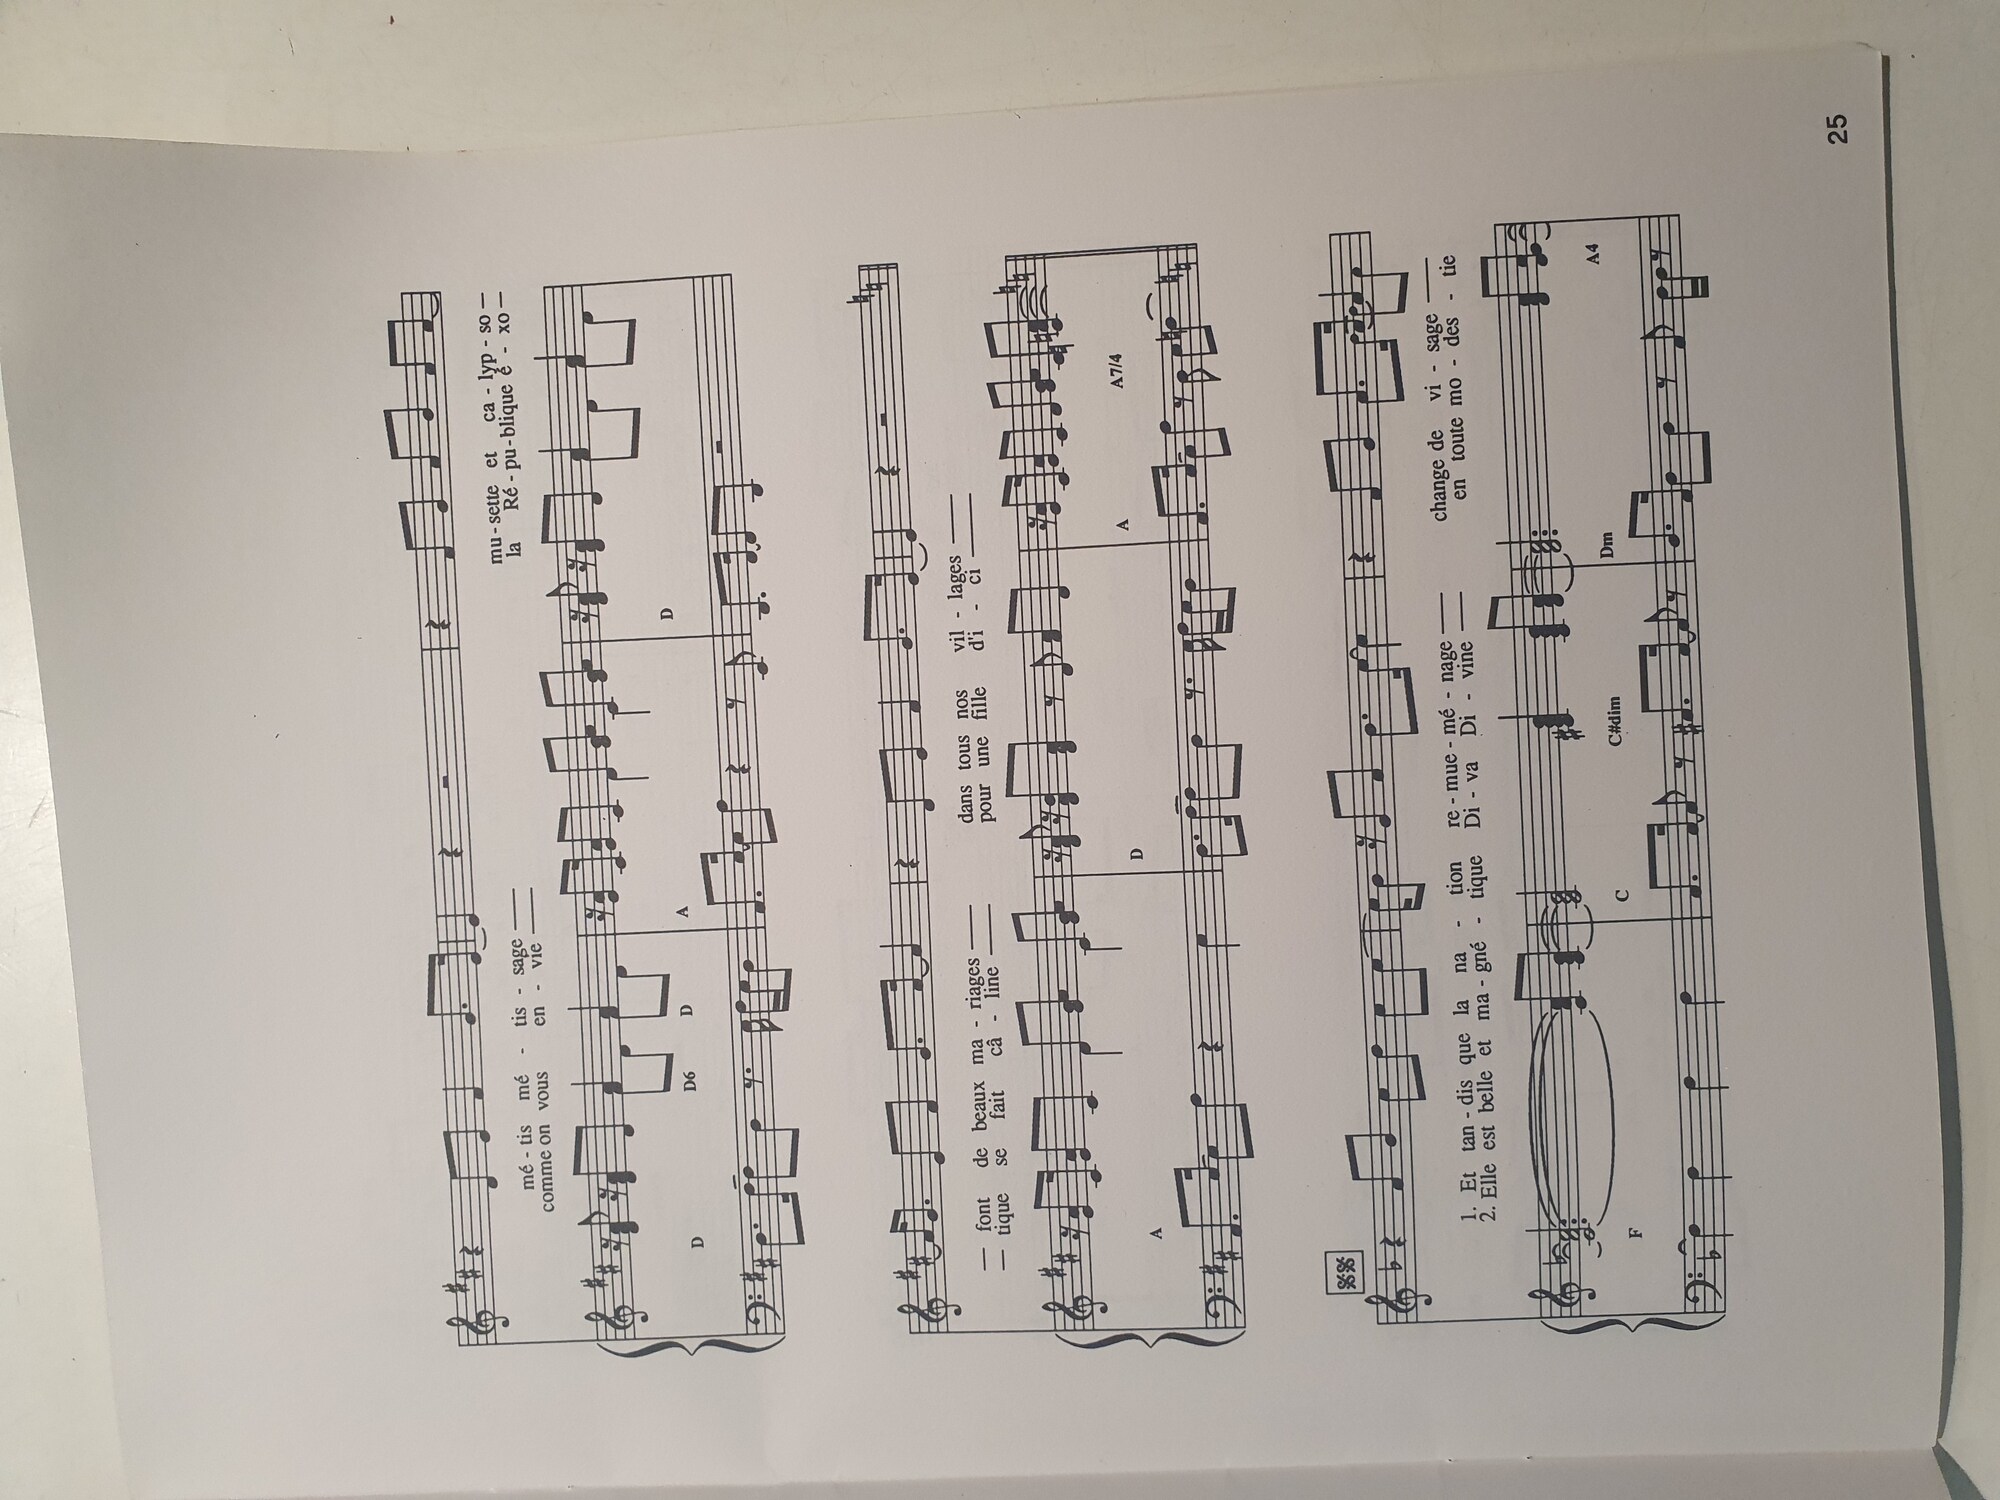 mé - tis mé - tis - sage mu - sette et ca - lyp - so
comme on vous en - vie la Ré - pu - blique é - xo
D D6 D A D
font de beaux ma - riages dans tous nos vil - lages
tique se fait câ - line pour une fille d'i - ci
A D A A7/4
1. Et tan - dis que la na - tion re - mue - mé - nage change de vi - sage
2. Elle est belle et ma - gné - tique Di - va Di - vine en toute mo - des - tie
F C C#dim Dm A4
25